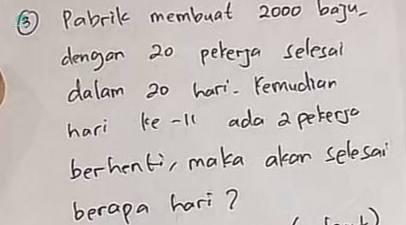 ③ Pabrik membuat 2000 baju
dengan 20 pekerja selesai
dalam 20 hari. Kemudian
hari ke-11 ada 2 pekerja
berhenti, maka akan selesai
berapa hari?